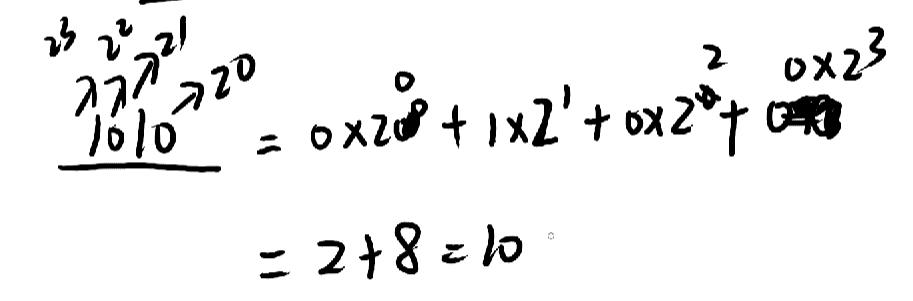 2³ 2² 2¹ 2⁰
1010 = 0×2⁰ + 1×2¹ + 0×2² + 0×2³
= 2+8=10